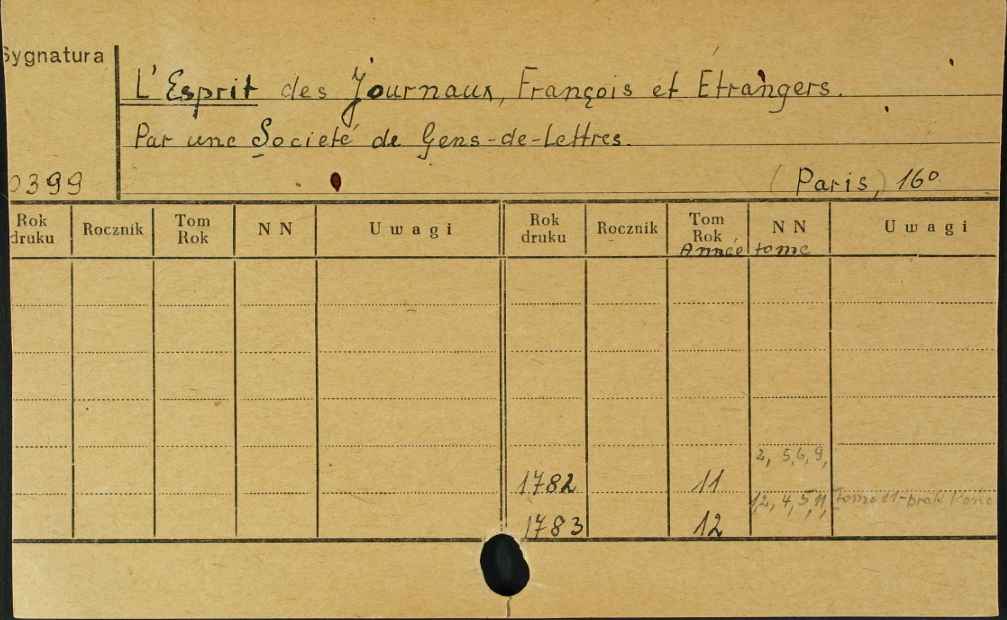 Sygnatura
L'Esprit des Journaux, François et Etrangers.
Par une Societé de Gens-de-Lettres.
0399
(Paris) 16°
Rok druku Rocznik Tom Rok NN Uwagi Rok druku Rocznik Tom Rok NN Uwagi
Année tome
2, 5, 6, 9,
1782 11
12, 4, 5, 11, tome 11-brak
1783 12